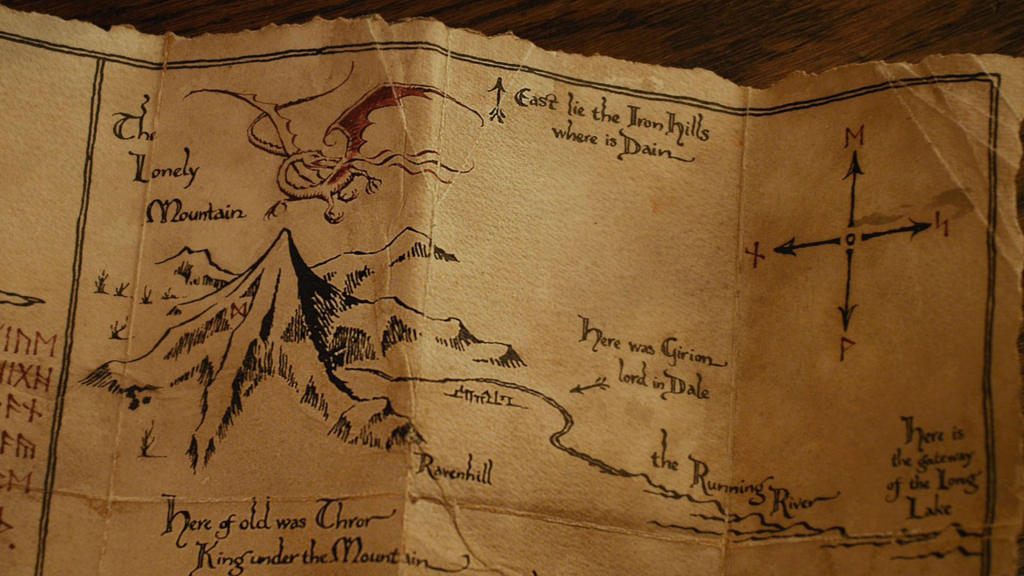 The
Lonely
Mountain
East lie the Iron Hills
where is Dain
ᛖ
ᚾ
ᛋ
ᚹ
ᛞ
Here was Girion
lord in Dale
Ravenhill
the Running River
Here is
the gateway
of the Long
Lake
Here of old was Thror
King under the Mountain